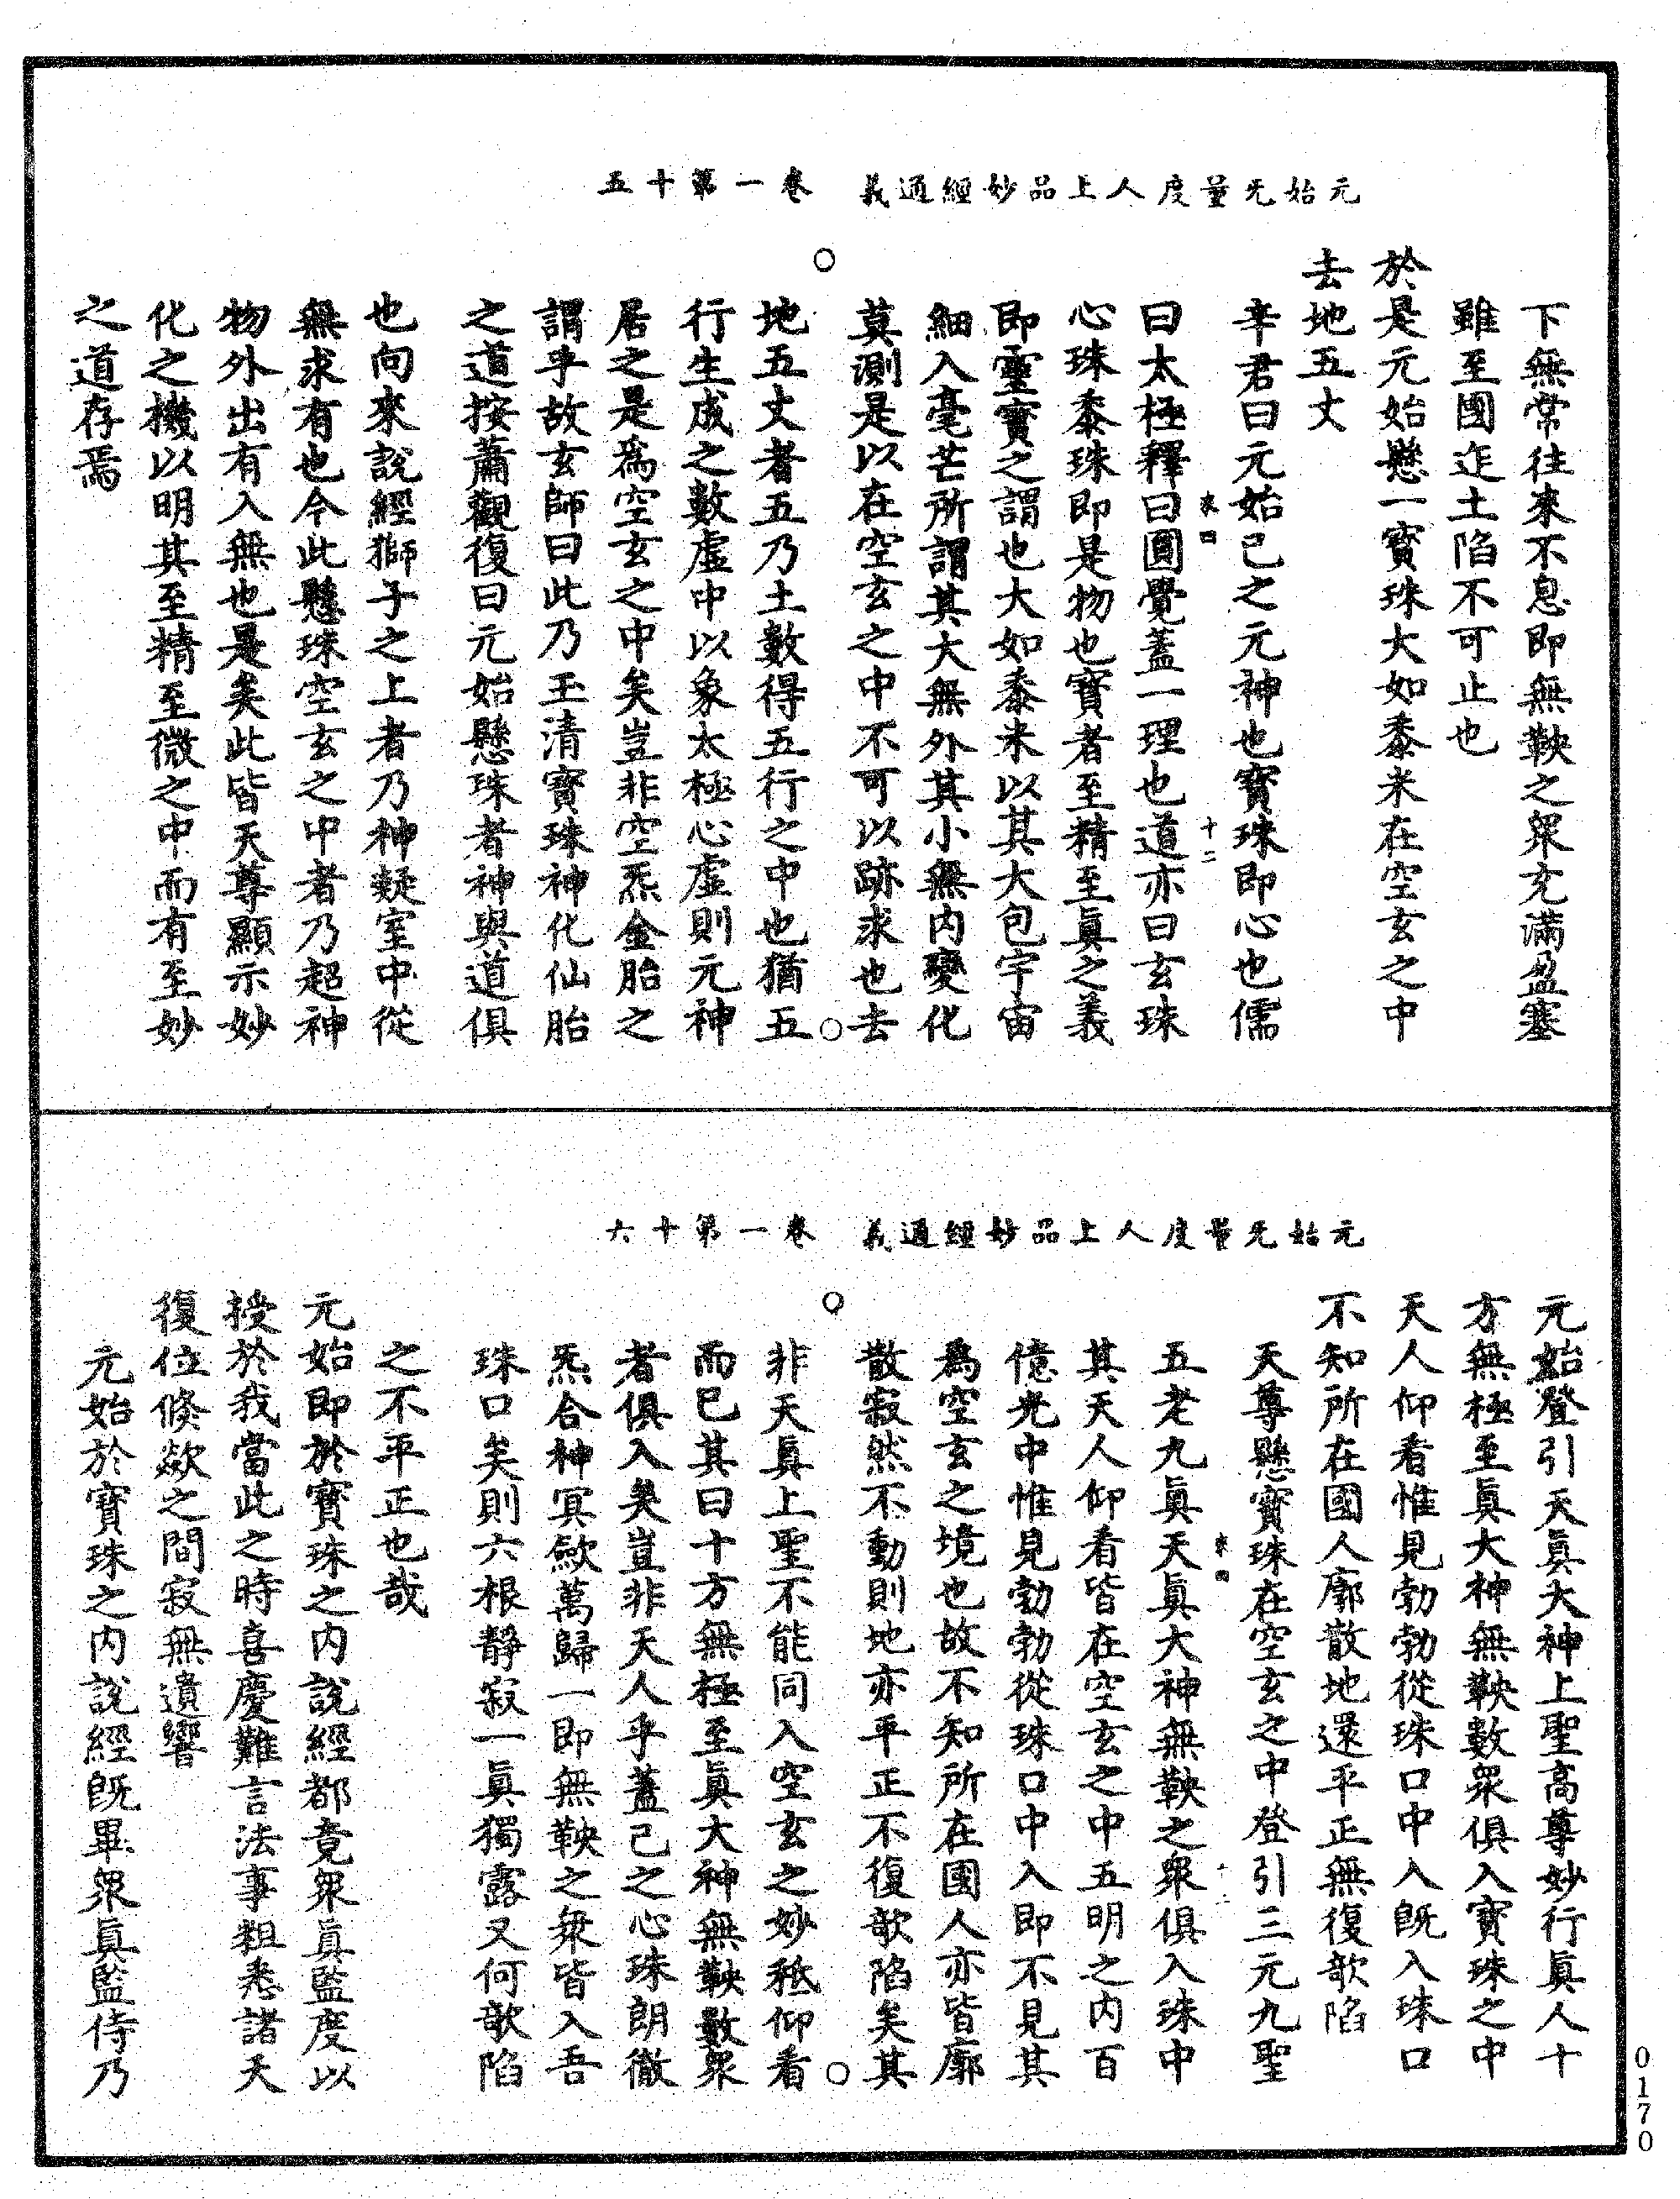 元始无量度人上品妙經通義　卷一第十五
下無常往來不息即無鞅之衆充滿盈塞
雖至國迮土陷不可止也
於是元始懸一寳珠大如黍米在空玄之中
去地五丈
辛君曰元始己之元神也寳珠即心也儒
來四　十二
曰太極釋曰圓覺蓋一理也道亦曰玄珠
心珠黍珠即是物也寳者至精至眞之義
即靈寳之謂也大如黍米以其大包宇宙
細入毫芒所謂其大無外其小無内變化
莫測是以在空玄之中不可以跡求也去
地五丈者五乃土數得五行之中也猶五
行生成之數虛中以象太極心虛則元神
居之是爲空玄之中矣豈非空炁金胎之
謂乎故玄師曰此乃玉清寳珠神化仙胎
之道按蕭觀復曰元始懸珠者神與道俱
也向來說經獅子之上者乃神凝室中從
無求有也今此懸珠空玄之中者乃超神
物外出有入無也是矣此皆天尊顯示妙
化之機以明其至精至微之中而有至妙
之道存焉
元始无量度人上品妙經通義　卷一第十六
元始登引天眞大神上聖高尊妙行眞人十
方無極至眞大神無鞅數衆俱入寳珠之中
天人仰看惟見勃勃從珠口中入旣入珠口
不知所在國人廓散地還平正無復欹陷
天尊懸寳珠在空玄之中登引三元九聖
來四　十二
五老九眞天眞大神無鞅之衆俱入珠中
其天人仰看皆在空玄之中五明之内百
億光中惟見勃勃從珠口中入即不見其
爲空玄之境也故不知所在國人亦皆廓
散寂然不動則地亦平正不復欹陷矣其
非天眞上聖不能同入空玄之妙秪仰看
而已其曰十方無極至眞大神無鞅數衆
者俱入矣豈非天人乎蓋己之心珠朗徹
炁合神冥歛萬歸一即無鞅之衆皆入吾
珠口矣則六根靜寂一眞獨露又何欹陷
之不平正也哉
元始即於寳珠之内說經都竟衆眞監度以
授於我當此之時喜慶難言法事粗悉諸天
復位倐欻之間寂無遺響
元始於寳珠之内說經旣畢衆眞監侍乃
0170